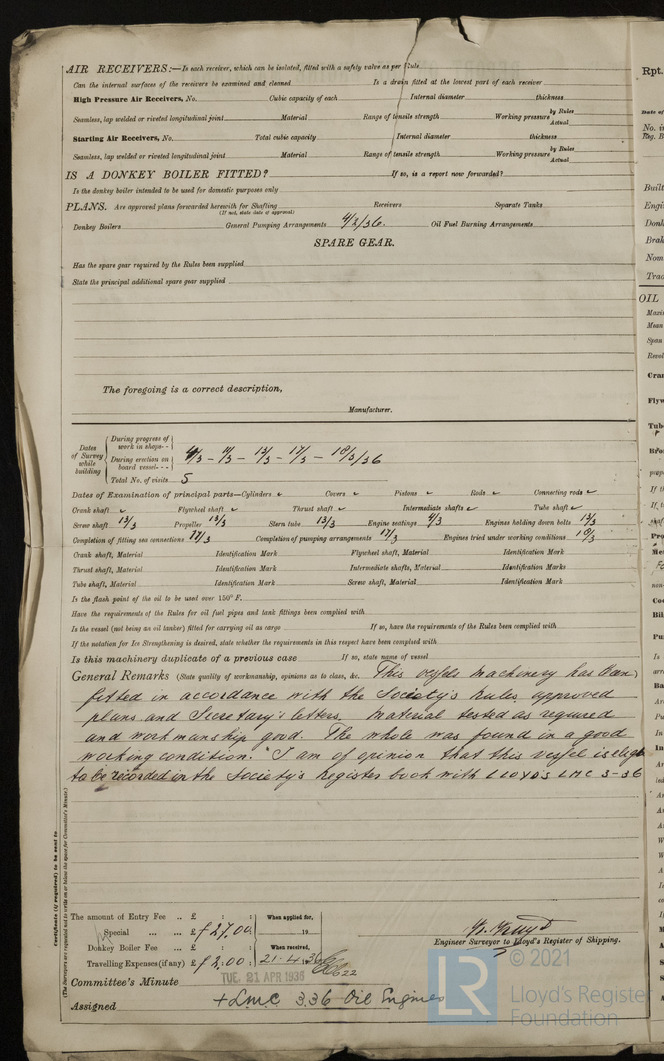 AIR RECEIVERS:—Is each receiver, which can be isolated, fitted with a safety valve as per Rule
Can the internal surfaces of the receivers be examined and cleaned Is a drain fitted at the lowest part of each receiver
High Pressure Air Receivers, No. Cubic capacity of each Internal diameter thickness
Seamless, lap welded or riveted longitudinal joint Material Range of tensile strength Working pressure by Rules Actual
Starting Air Receivers, No. Total cubic capacity Internal diameter thickness
Seamless, lap welded or riveted longitudinal joint Material Range of tensile strength Working pressure by Rules Actual
IS A DONKEY BOILER FITTED? If so, is a report now forwarded?
Is the donkey boiler intended to be used for domestic purposes only
PLANS. Are approved plans forwarded herewith for Shafting Receivers Separate Tanks
(If not, state date of approval)
Donkey Boilers General Pumping Arrangements 4/2/36. Oil Fuel Burning Arrangements
SPARE GEAR.
Has the spare gear required by the Rules been supplied
State the principal additional spare gear supplied
The foregoing is a correct description,
Manufacturer.
Dates of Survey while building
During progress of work in shops - -
During erection on board vessel - - -
4/3 - 11/3 - 13/3 - 17/3 - 18/3/36
Total No. of visits 5
Dates of Examination of principal parts—Cylinders ✓ Covers ✓ Pistons ✓ Rods ✓ Connecting rods ✓
Crank shaft ✓ Flywheel shaft ✓ Thrust shaft ✓ Intermediate shafts ✓ Tube shaft ✓
Screw shaft 13/3 Propeller 13/3 Stern tube 13/3 Engine seatings 4/3 Engines holding down bolts 17/3
Completion of fitting sea connections 17/3 Completion of pumping arrangements 17/3 Engines tried under working conditions 18/3
Crank shaft, Material Identification Mark Flywheel shaft, Material Identification Mark
Thrust shaft, Material Identification Mark Intermediate shafts, Material Identification Marks
Tube shaft, Material Identification Mark Screw shaft, Material Identification Mark
Is the flash point of the oil to be used over 150° F.
Have the requirements of the Rules for oil fuel pipes and tank fittings been complied with
Is the vessel (not being an oil tanker) fitted for carrying oil as cargo If so, have the requirements of the Rules been complied with
If the notation for Ice Strengthening is desired, state whether the requirements in this respect have been complied with
Is this machinery duplicate of a previous case If so, state name of vessel
General Remarks (State quality of workmanship, opinions as to class, &c. This vessels machinery has been
fitted in accordance with the Society's Rules, approved
plans and Secretary's letters, material tested as required
and workmanship good. The whole was found in a good
working condition. I am of opinion that this vessel is eligible
to be recorded in the Society's register book with LLOYDS LMC 3-36
Certificate (if required) to be sent to
(The Surveyors are requested not to write on or below the space for Committee's Minute.)
The amount of Entry Fee .. £ : : When applied for,
Special ... ... £ f 27.00 19
Donkey Boiler Fee ... £ : : When received,
Travelling Expenses (if any) £ f 2.00 21.4.36
Engineer Surveyor to Lloyd's Register of Shipping.
Committee's Minute TUE. 21 APR 1936
Assigned + LMC 3.36 Oil Engines
LR
© 2021
Lloyd's Register
Foundation
Rpt.
OIL